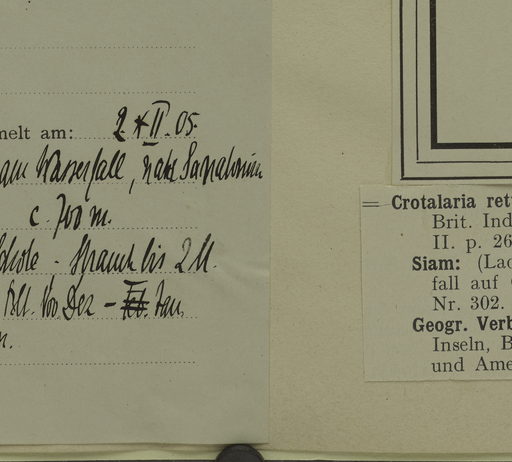 melt am: 2. II. 05.
am Wasserfall, nahe Sanatorium
c. 700 m.
Strauch bis 2 M.
Blt. Dez - Feb. Jan.
= Crotalaria ret
Brit. Ind
II. p. 26
Siam: (Lac
fall auf
Nr. 302.
Geogr. Verb
Inseln, B
und Ame